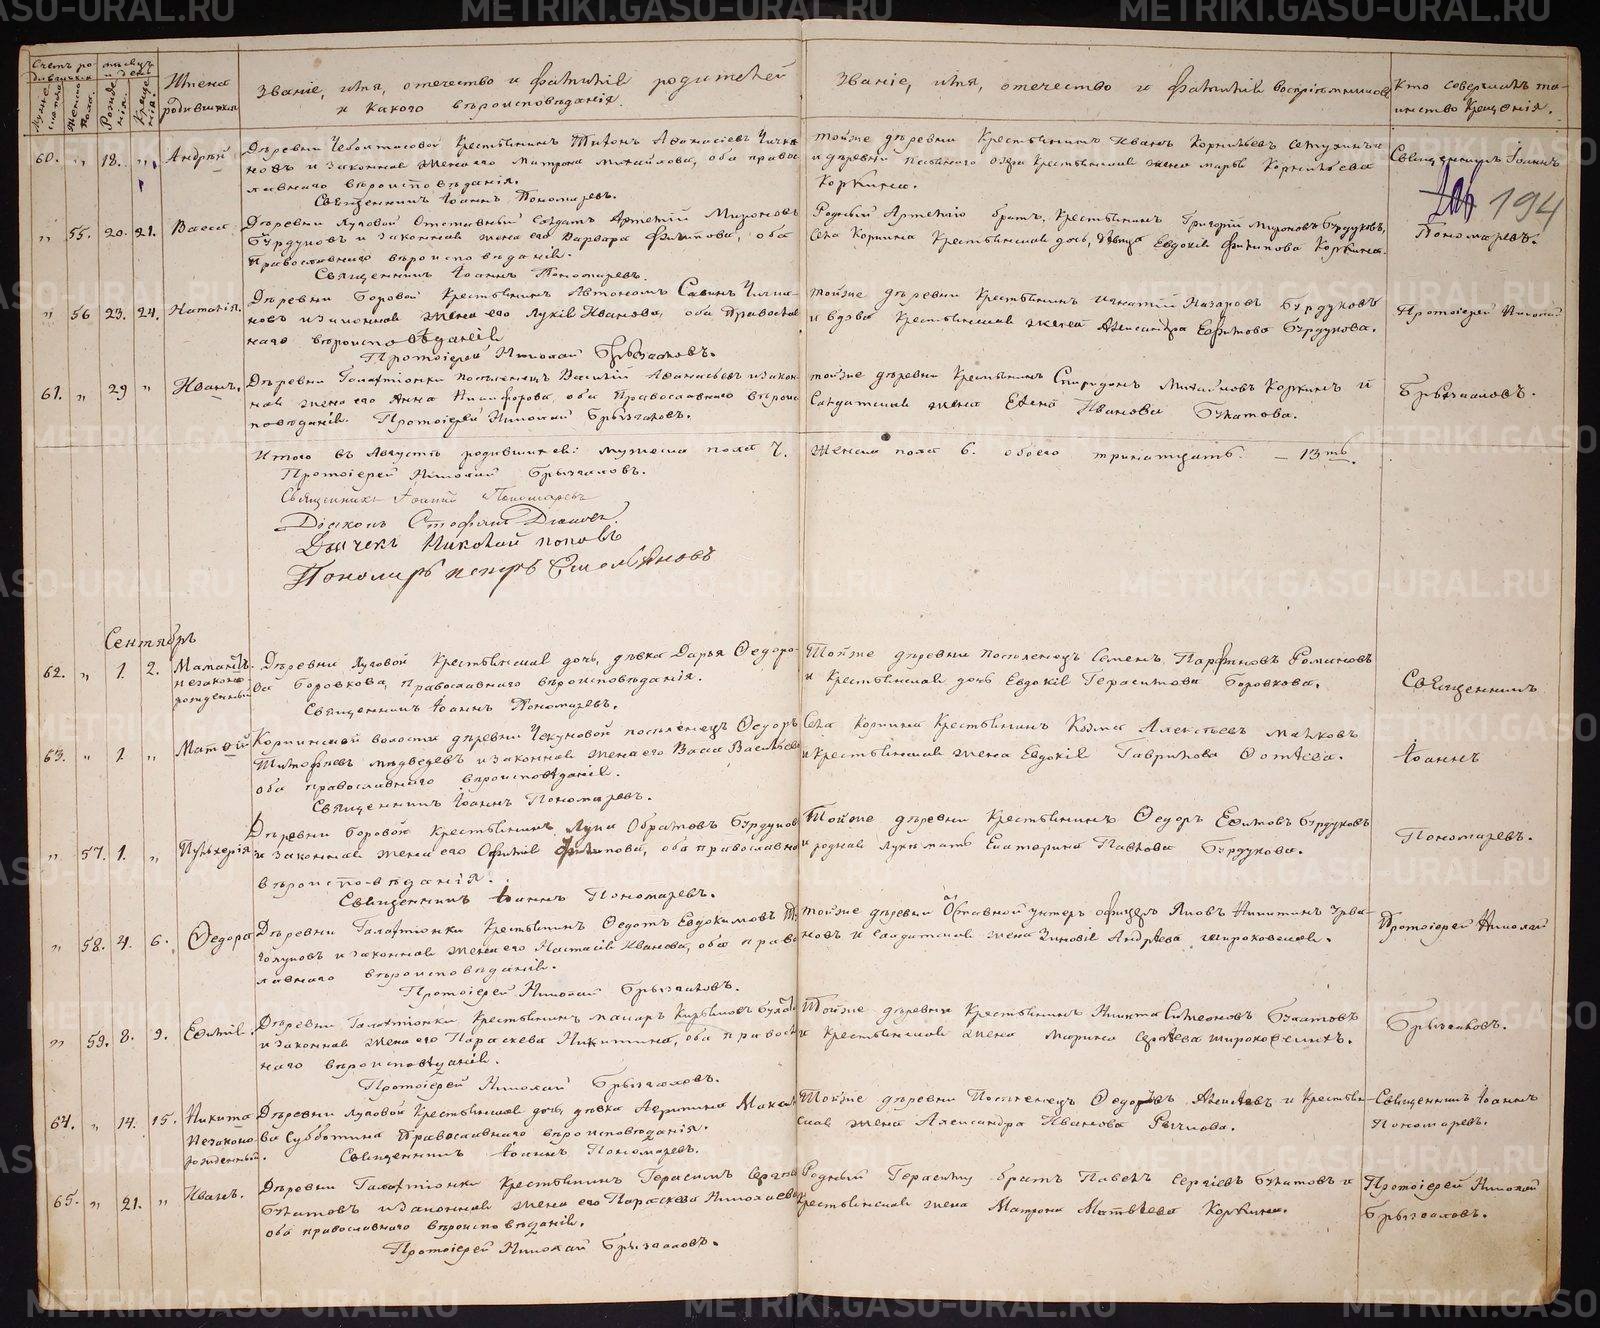 Счетъ родившихся
Мужеска пола.
Женска пола.
Мѣсяцъ и день
Рожденія.
Крещенія.
Имена родившихся
Званіе, имя, отечество и фамилія родителей
и какого вѣроисповѣданія.
Званіе, имя, отечество и фамилія воспріемниковъ
Кто совершалъ та-
инство Крещенія.
194
60. " 18. " Андрей
Деревни Крестьянинъ Тихонъ Аѳанасіевъ
новъ и законная жена его Матрона Михайлова, оба право
славнаго вѣроисповѣданія.
Священникъ Іоаннъ Пономаревъ.
тойже деревни Крестьянинъ Иванъ Корнильевъ
и деревни крестьянская жена Марѳа Корнильева
Коркина.
Священникъ Іоаннъ
Пономаревъ.
" 55. 20. 21. Васса
Деревни Луговой Отставный Солдатъ Артемій Мироновъ
Бурдуковъ и законная жена его Варвара Филипова, оба
Православнаго вѣроисповѣданія.
Священникъ Іоаннъ Пономаревъ.
Родный Артемію братъ, крестьянинъ Григорій Мироновъ Бурдуковъ,
Села Коркина Крестьянская дочь, дѣвица Евдокія Филипова Коркина.
" 56 23. 24. Наталія.
Деревни Боровой Крестьянинъ Автономъ Савинъ
новъ и законная жена его Лукія Иванова, оба Православ
наго вѣроисповѣданія
Протоіерей Николай Брызгаловъ.
тойже деревни Крестьянинъ Игнатій Назаровъ Бурдуковъ
и вдова Крестьянская жена Александра Ефимова Бурдукова.
Протоіерей Николай
Брызгаловъ.
61. " 29 " Иванъ.
Деревни Галактіонки поселенецъ Василій Аѳанасьевъ и закон
ная жена его Анна Никифорова, оба Православнаго вѣроис
повѣданія. Протоіерей Николай Брызгаловъ.
тойже деревни Крестьянинъ Спиридонъ Михайловъ Коркинъ и
Солдатская жена Елена Иванова Булатова.
Итого въ Августѣ родившихся: мужеска пола 7.
Женска пола 6. обоего тринатцать. — 13ть.
Протоіерей Николай Брызгаловъ.
Священникъ Іоаннъ Пономаревъ
Діаконъ Стефанъ
Дьячекъ Николай Поповъ
Пономарь Петръ
Сентябрь
62. " 1. 2. незаконо
рожденный
Деревни Луговой Крестьянская дочь, дѣвка Дарья Ѳедоро-
ва Боровкова, Православнаго вѣроисповѣданія.
Священникъ Іоаннъ Пономаревъ.
Тойже деревни поселенецъ Семенъ Парфеновъ Романовъ
и Крестьянская дочь Евдокія Герасимова Боровкова.
Священникъ
Іоаннъ
Пономаревъ.
63. " 1. " Матѳей
Коркинской волости деревни Чекуновой поселенецъ Ѳедоръ
Тимофеевъ Медведевъ и законная жена его Васса Васильева
оба православнаго вѣроисповѣданія.
Священникъ Іоаннъ Пономаревъ.
Села Коркина Крестьянинъ Козма Алексѣевъ Малковъ
и крестьянская жена Евдокія Гаврилова Ѳотѣева.
" 57. 1. " Пульхерія
Деревни Боровой Крестьянинъ Лука Бурдуков
и законная жена его Офимія Филипова, оба православна
вѣроисповѣданія.
Священникъ Іоаннъ Пономаревъ.
Тойже деревни Крестьянинъ Ѳедоръ Ефимовъ Бурдуковъ
и родная Лукѣ мать Екатерина Павлова Бурдукова.
" 58. 4. 6. Ѳедора
Деревни Галактіонки Крестьянинъ Ѳедотъ Евдокимовъ
и законная жена его Настасія Иванова, оба право
славнаго вѣроисповѣданія.
Протоіерей Николай Брызгаловъ.
тойже деревни унтеръ офицеръ Яковъ Никитинъ Урва-
новъ и солдатская жена Зиновія Андрѣева Широковская.
Протоіерей Николай
Брызгаловъ.
" 59. 8. 9. Евфимія.
Деревни Галактіонки Крестьянинъ Макаръ Кириловъ
и законная жена его Параскева Никитина, оба православ
наго вѣроисповѣданія.
Протоіерей Николай Брызгаловъ.
Тойже деревни Крестьянинъ Никита Симеоновъ Булатовъ
и крестьянская жена Марина Сергѣева Широковскихъ.
64. " 14. 15. Никита
Незаконо-
рожденный.
Деревни Луговой Крестьянская дочь, дѣвка Агрипина Макси
ва Субботина Православнаго вѣроисповѣданія.
Священникъ Іоаннъ Пономаревъ.
Тойже деревни Поселенецъ Ѳедоръ Алексѣевъ и Крестьян-
ская жена Александра Иванова Рычкова.
Священникъ Іоаннъ
Пономаревъ.
65. " 21. " Иванъ.
Деревни Галактіонки Крестьянинъ Герасимъ Сергѣевъ
Булатовъ и законная жена его Параскева Николаева
оба православнаго вѣроисповѣданія.
Протоіерей Николай Брызгаловъ.
Родный Герасиму братъ Павелъ Сергіевъ Булатовъ и
крестьянская жена Матрона Матвѣева Коркина.
Протоіерей Николай
Брызгаловъ.
METRIKI.GASO-URAL.RU